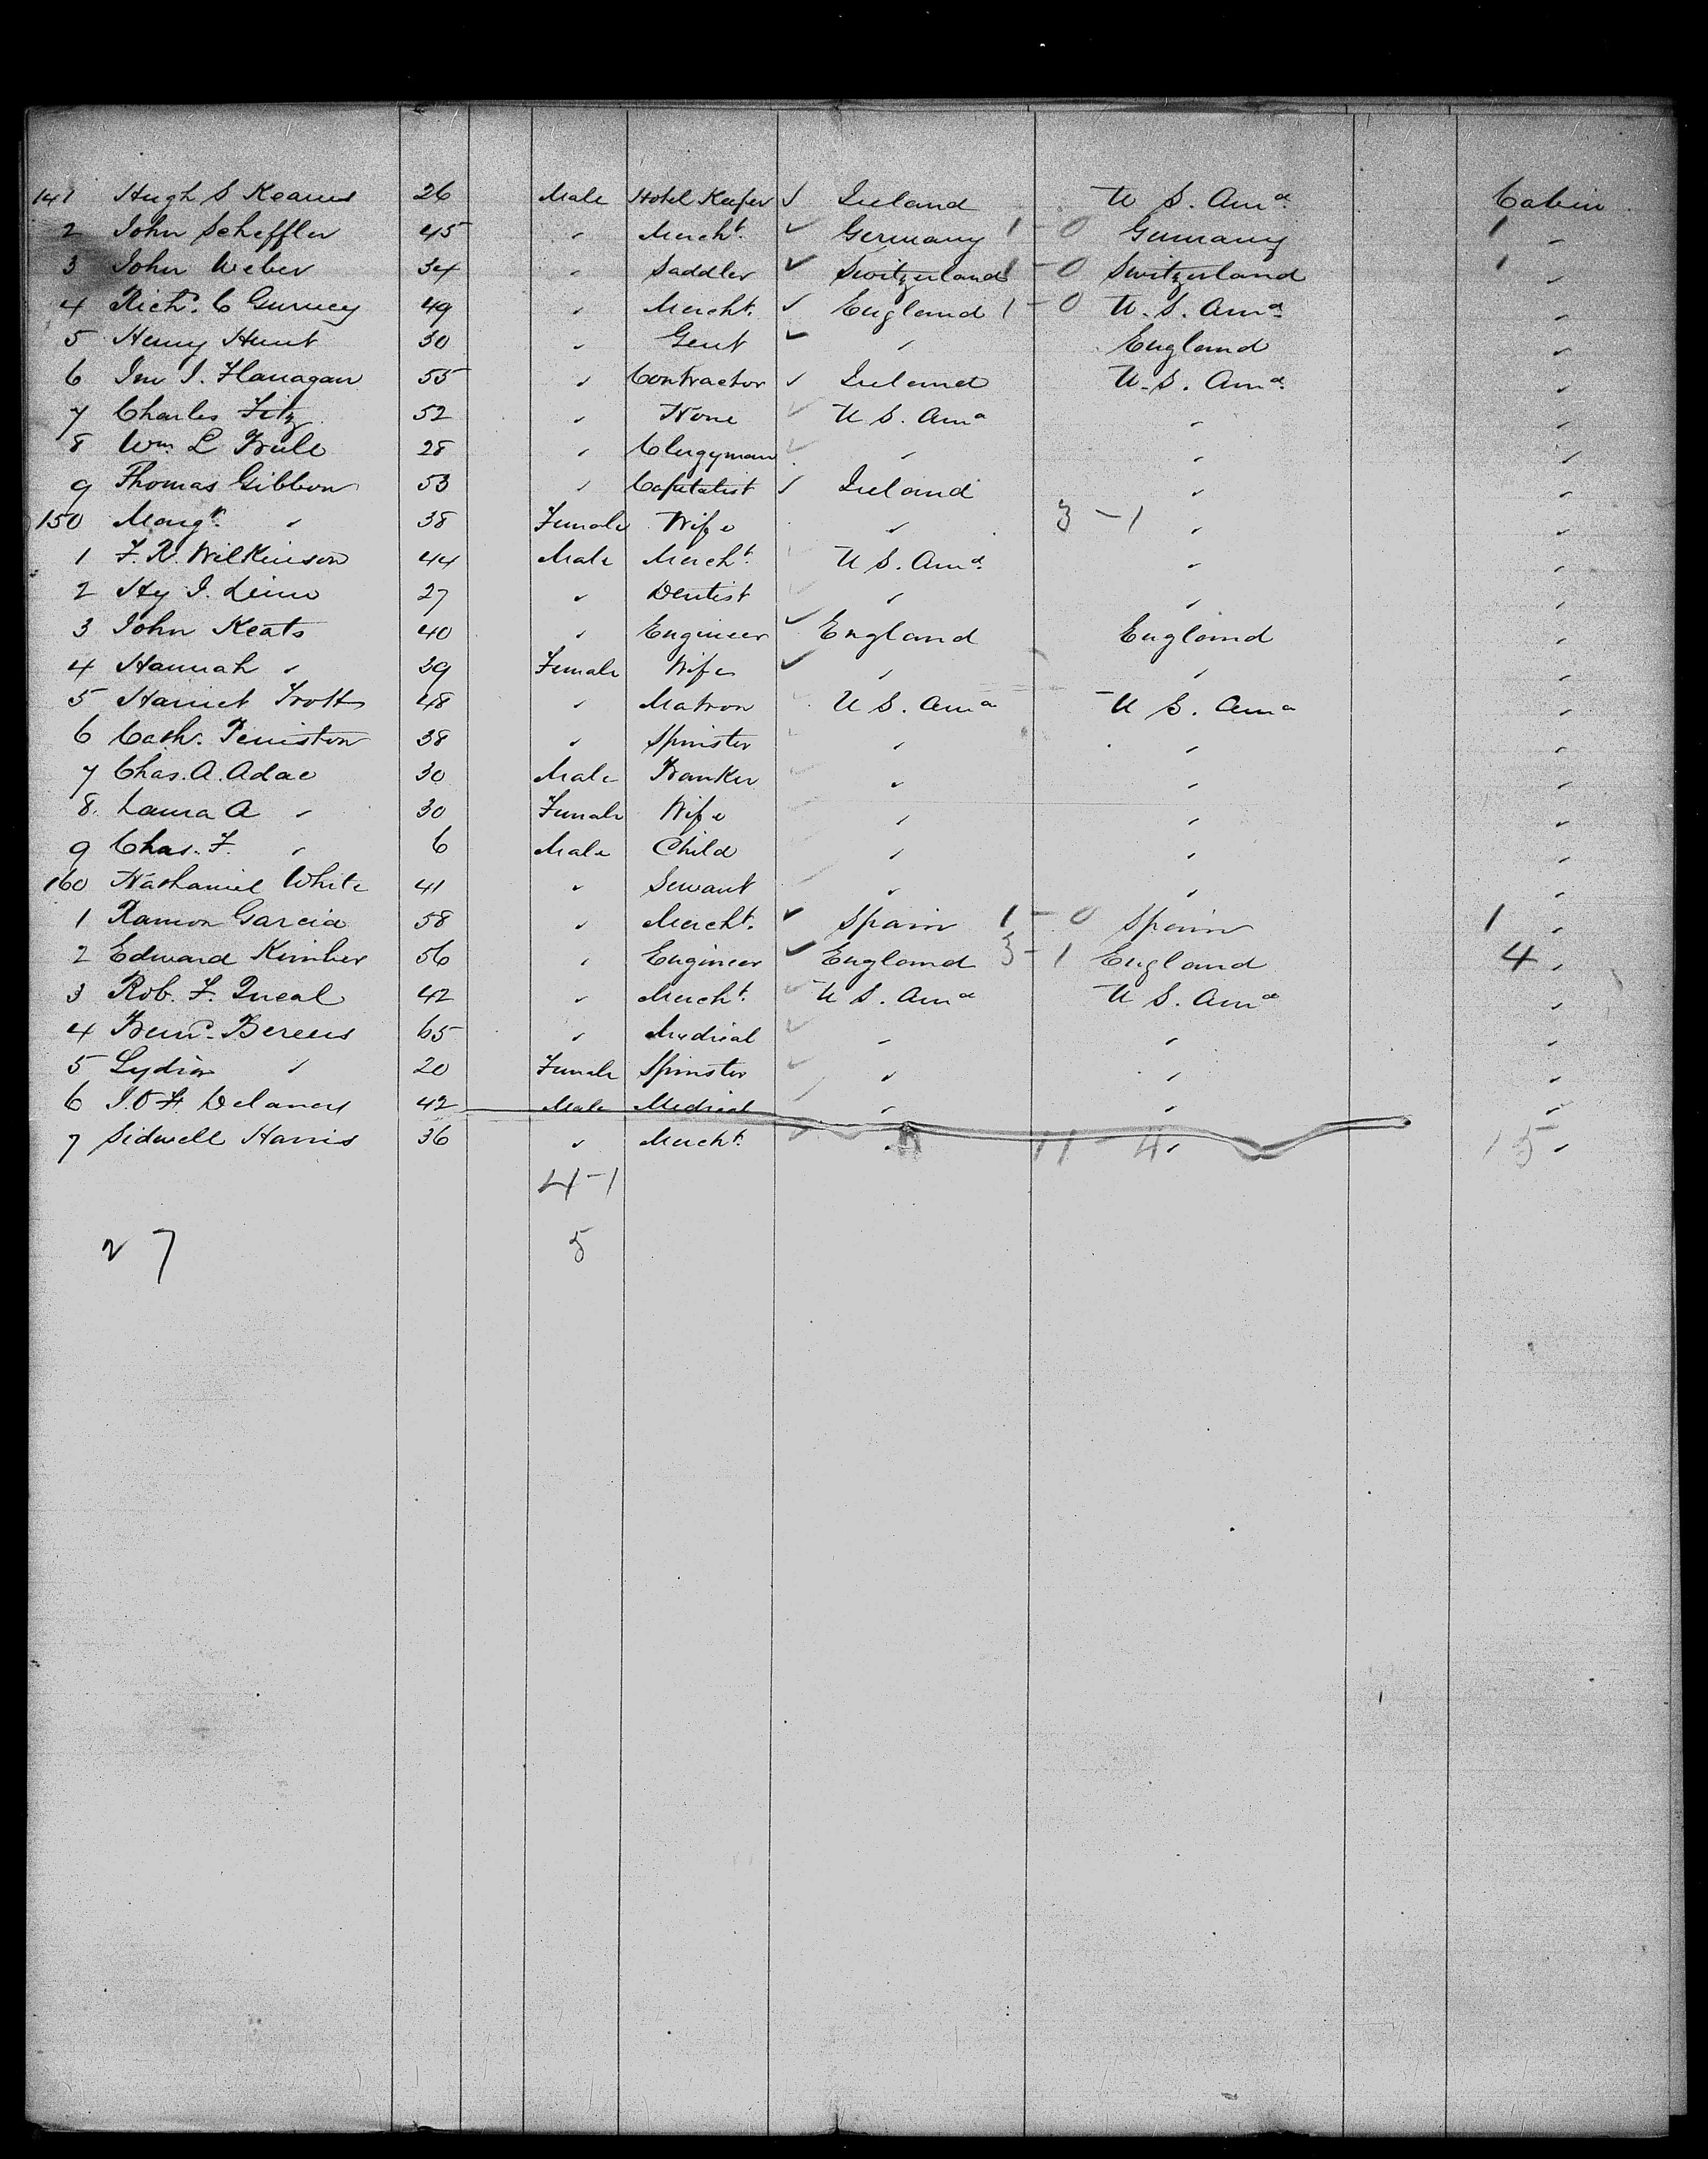 141 Hugh S Keanes 26 Male Hotel Keeper ✓ Ireland U S. Ama Cabin
2 John Scheffler 45 " Mercht. ✓ Germany 1 - 0 Germany 1 "
3 John Weber 34 " Saddler ✓ Switzerland 1 - 0 Switzerland 1 "
4 Richd. C Gurney 49 " Mercht. ✓ England 1 - 0 U. S. Ama "
5 Henry Hunt 30 " Gent ✓ " England "
6 Jno J. Flanagan 55 " Contractor ✓ Ireland U. S. Ama "
7 Charles Fitz 52 " None ✓ U S. Ama " "
8 Wm. L 28 " Clergyman ✓ " " "
9 Thomas Gibbon 53 " Capitalist ✓ Ireland " "
150 Margt. " 38 Female Wife " 3 - 1 " "
1 F. R. Wilkinson 44 Male Mercht. U S. Ama " "
2 Hy J. 27 " Dentist " " "
3 John Keats 40 " Engineer ✓ England England "
4 Hannah " 39 Female Wife ✓ " " "
5 Harriet Trott 48 " Matron U S. Ama U S. Ama "
6 Cath. Peniston 38 " Spinster " " "
7 Chas. A. Adae 30 Male Banker " " "
8. Laura A " 30 Female Wife " " "
9 Chas. F. " 6 Male Child " " "
160 Nathaniel White 41 " Servant " " "
1 Ramon Garcia 58 " Mercht. ✓ Spain 1 - 0 Spain 1 "
2 Edward Kimber 56 " Engineer ✓ England 3 - 1 England 4 "
3 Rob. F. Queal 42 " Mercht. ✓ U S. Ama U S. Ama "
4 Benj. Berens 65 " Medical ✓ " " "
5 Lydia " 20 Female Spinster ✓ " " "
6 J. O F. Delaney 42 Male Medical " " "
7 Sidwell Harris 36 " Mercht. ✓ " 11 - 4 " 15 "
4-1
27 5